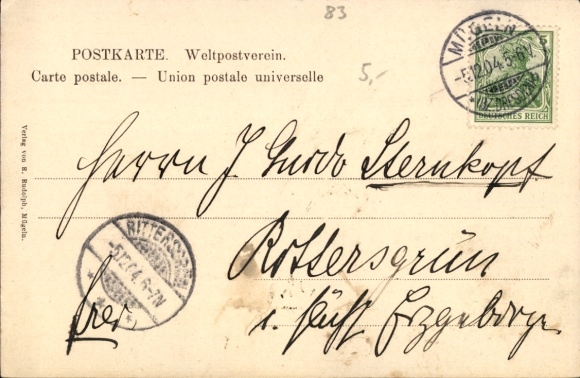 83
POSTKARTE. Weltpostverein.
Carte postale. — Union postale universelle
5,-
5
DEUTSCHES REICH
MÜGELN
-5.12.04. 5-6V
(BZ. DRESDEN)
Verlag von R. Rudolph, Mügeln.
Herrn J. Guido Sternkopf
Rittersgrün
i. sächs. Erzgebirge
frei
RITTERSGRÜN
-5.12.04. 6-7N